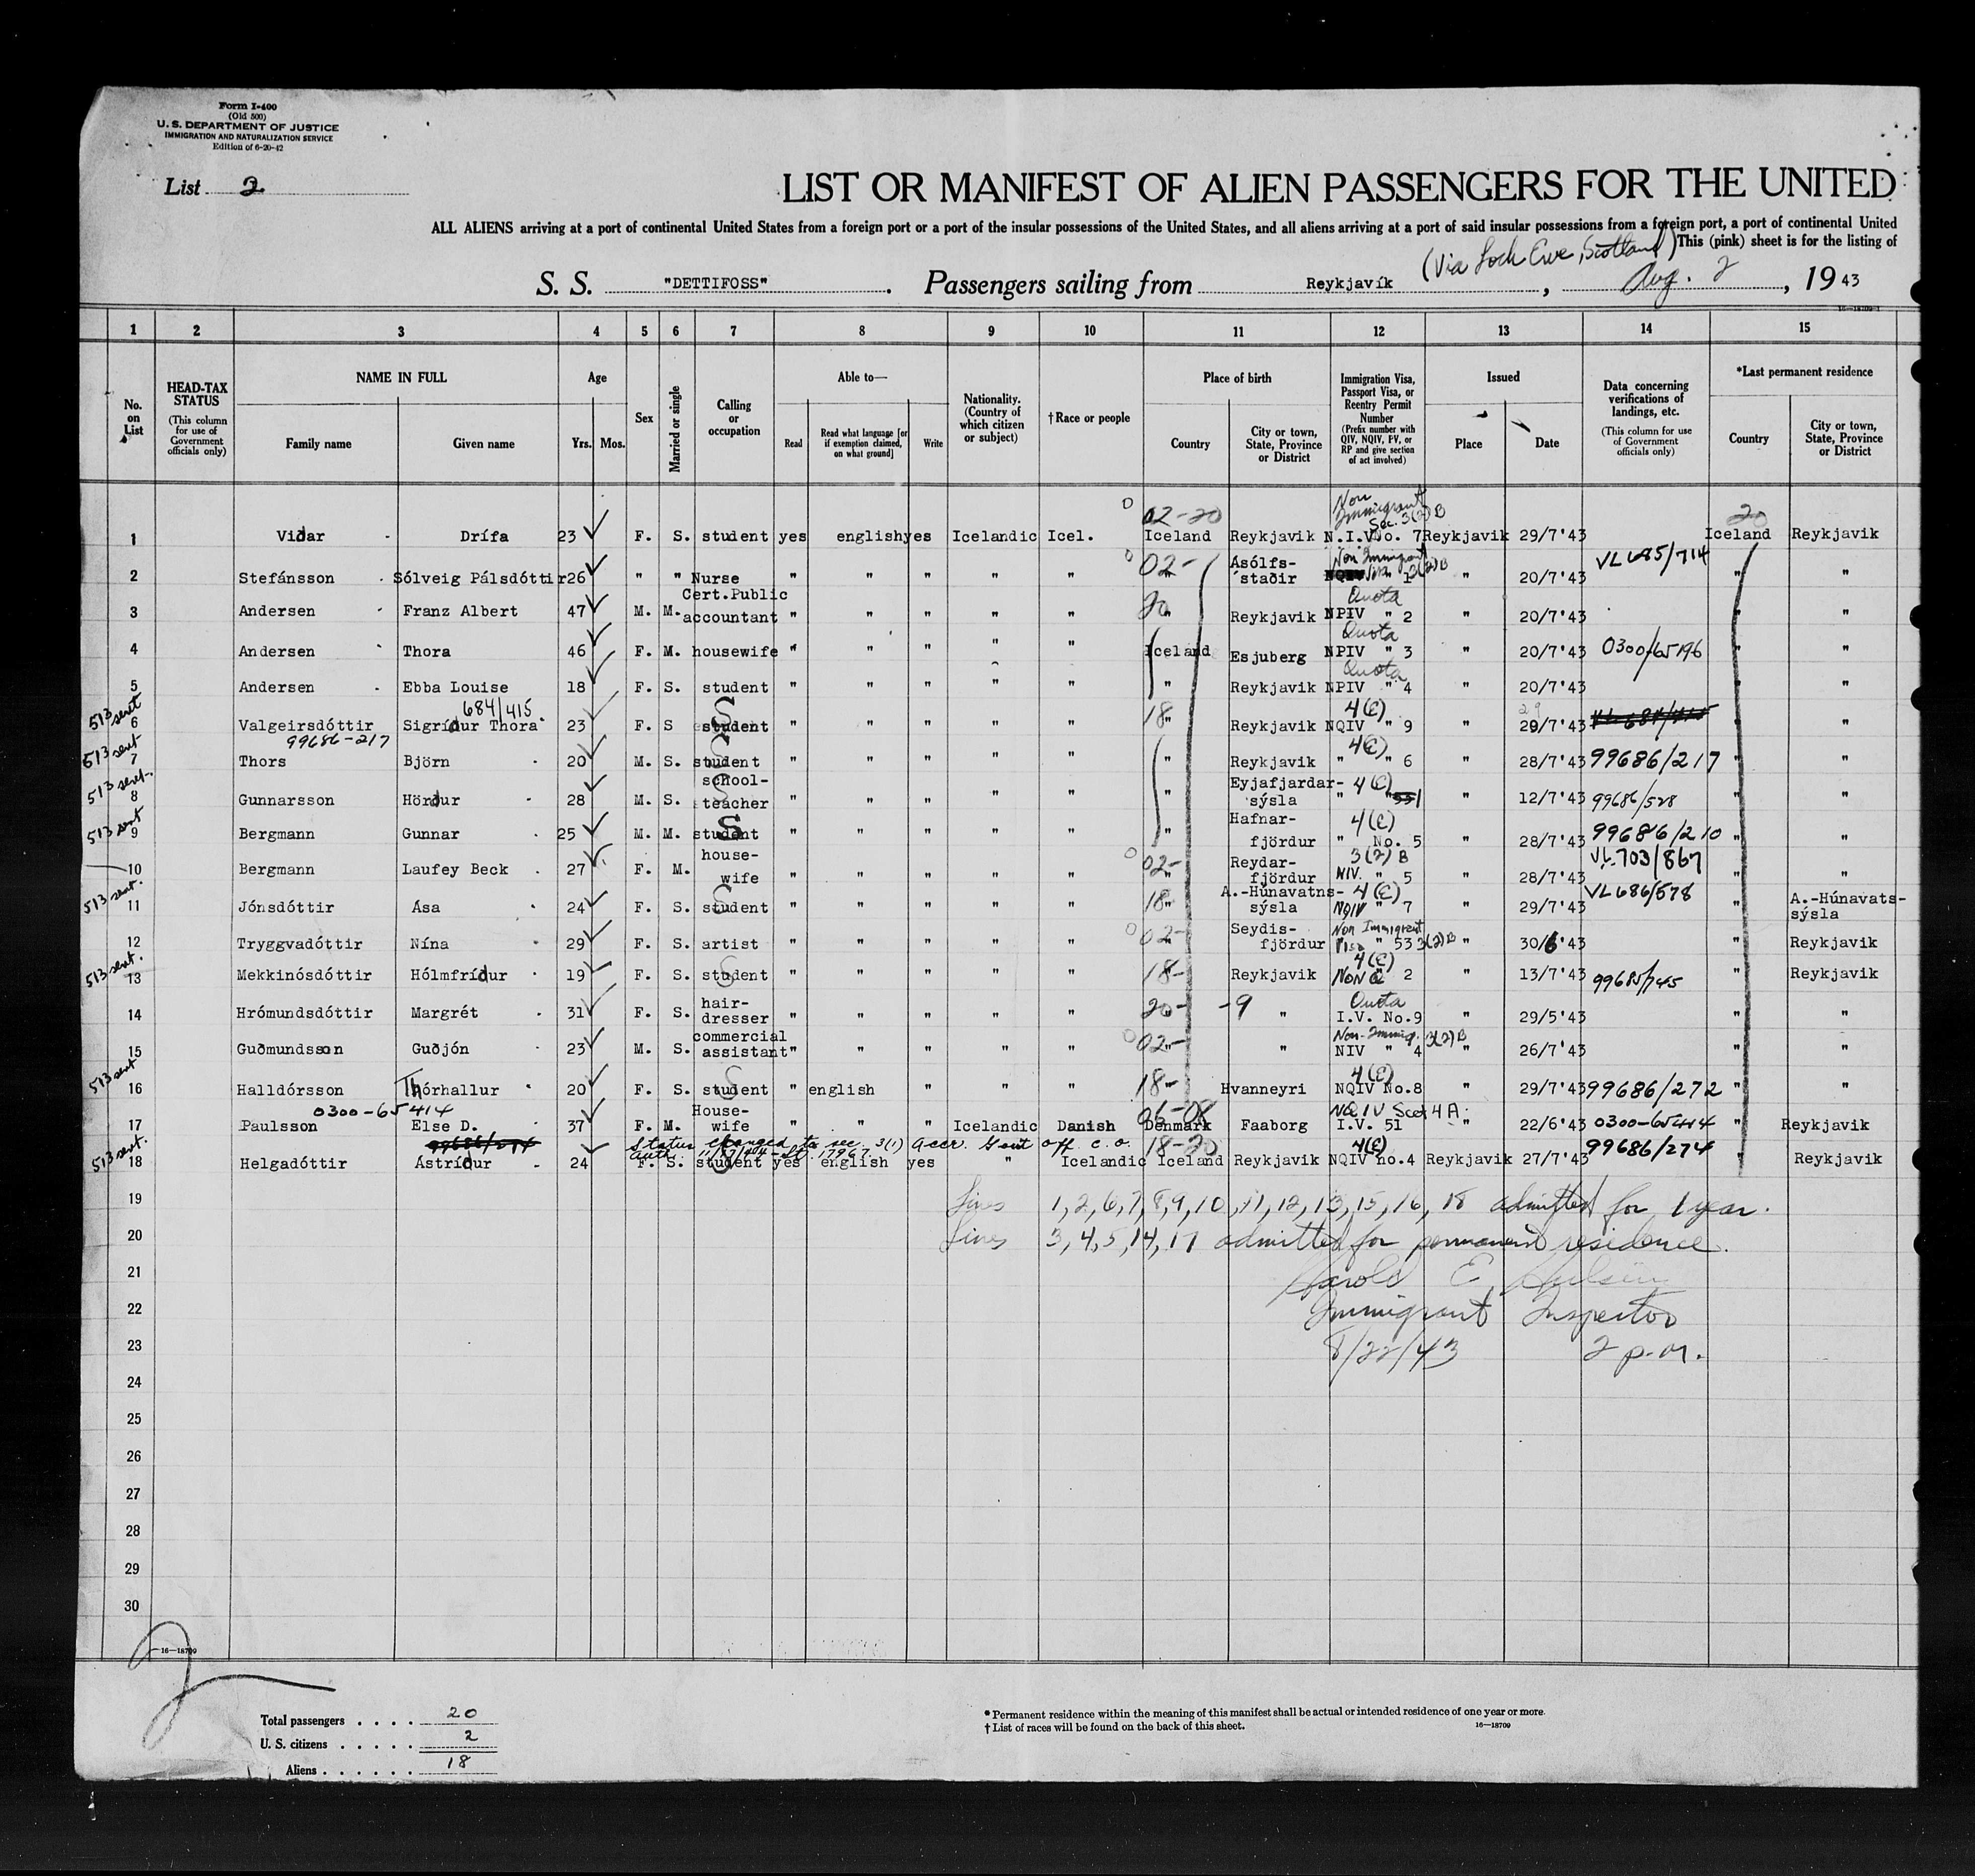 Form I-400
(Old 500)
U. S. DEPARTMENT OF JUSTICE
IMMIGRATION AND NATURALIZATION SERVICE
Edition of 6-20-42
List 2
LIST OR MANIFEST OF ALIEN PASSENGERS FOR THE UNITED
ALL ALIENS arriving at a port of continental United States from a foreign port or a port of the insular possessions of the United States, and all aliens arriving at a port of said insular possessions from a foreign port, a port of continental United
(Via Loch Ewe, Scotland) This (pink) sheet is for the listing of
S. S. "DETTIFOSS". Passengers sailing from Reykjavík, Aug. 2, 1943
16—18709-1
1 2 3 4 5 6 7 8 9 10 11 12 13 14 15
No. on List
HEAD-TAX STATUS
(This column for use of Government officials only)
NAME IN FULL
Family name Given name
Age
Yrs. Mos.
Sex
Married or single
Calling or occupation
Able to—
Read
Read what language [or if exemption claimed, on what ground]
Write
Nationality. (Country of which citizen or subject)
†Race or people
Place of birth
Country
City or town, State, Province or District
Immigration Visa, Passport Visa, or Reentry Permit Number
(Prefix number with QIV, NQIV, PV, or RP and give section of act involved)
Issued
Place Date
Data concerning verifications of landings, etc.
(This column for use of Government officials only)
*Last permanent residence
Country
City or town, State, Province or District
Non Immigrant Sec. 3(2)B
02-20 20
1 Vidar Drífa 23 F. S. student yes english yes Icelandic Icel. Iceland Reykjavik N.I.V. No. 7 Reykjavik 29/7'43 Iceland Reykjavik
2 Stefánsson Sólveig Pálsdóttir 26 " " Nurse " " " " " 02- " Ásólfs-staðir Non Immigrant 3(2)B " 1 " 20/7'43 VL 685/714 " "
3 Andersen Franz Albert 47 M. M. Cert.Public accountant " " " " " 20 " Reykjavik Quota NPIV " 2 " 20/7'43 " "
4 Andersen Thora 46 F. M. housewife " " " " " Iceland Esjuberg Quota NPIV " 3 " 20/7'43 0300-65196 " "
5 Andersen Ebba Louise 18 F. S. student " " " " " " Reykjavik Quota NPIV " 4 " 20/7'43 " "
513 sent 684/415
6 Valgeirsdóttir Sigrídur Thora 23 F. S student " " " " " 18- " Reykjavik 4(E) NQIV " 9 " 29/7'43 " "
99686-217
513 sent
7 Thors Björn 20 M. S. student " " " " " " Reykjavik 4(E) " " 6 " 28/7'43 99686/217 " "
513 sent
8 Gunnarsson Hördur 28 M. S. school-teacher " " " " " " Eyjafjardar-sýsla 4(E) " 1 " 12/7'43 99686/528 " "
513 sent
9 Bergmann Gunnar 25 M. M. student " " " " " " Hafnar-fjördur 4(E) " No. 5 " 28/7'43 99686/210 " "
10 Bergmann Laufey Beck 27 F. M. house-wife " " " " " 02- " Reydar-fjördur 3(2)B NIV. " 5 " 28/7'43 VL 703/867 " "
513 sent.
11 Jónsdóttir Ása 24 F. S. student " " " " " 18- " A.-Húnavatns-sýsla 4(E) NQIV " 7 " 29/7'43 VL 686/578 " A.-Húnavats-sýsla
12 Tryggvadóttir Nína 29 F. S. artist " " " " " 02- " Seydis-fjördur Non Immigrant Visa " 53 3(2)B " 30/6'43 " Reykjavik
513 sent.
13 Mekkinósdóttir Hólmfrídur 19 F. S. student " " " " " 18- " Reykjavik 4(E) NON Q " 2 " 13/7'43 99685/745 " Reykjavik
14 Hrómundsdóttir Margrét 31 F. S. hair-dresser " " " " " 20- -9 " Quota I.V. No.9 " 29/5'43 " "
15 Guðmundsson Guðjón 23 M. S. commercial assistant " " " " " 02- " " Non-Immig. 3(2)B NIV " 4 " 26/7'43 " "
513 sent
16 Halldórsson Thórhallur 20 F. S. student " english " " " 18- Hvanneyri 4(E) NQIV No.8 " 29/7'43 99686/272 " "
0300-65414
17 Paulsson Else D. 37 F. M. House-wife " " " Icelandic Danish 06-08 Denmark Faaborg NQIV Sect 4A. I.V. 51 " 22/6'43 0300-65414 Reykjavik
99686/274 Status changed to sec. 3(1) Accr. Govt off. c.o.
513 sent.
18 Helgadóttir Astrídur 24 F. S. student yes english yes " Icelandic 18-20 Iceland Reykjavik 4(E) NQIV no.4 Reykjavik 27/7'43 99686/274 " Reykjavik
19 Lines 1, 2, 6, 7, 8, 9, 10, 11, 12, 13, 15, 16, 18 admitted for 1 year.
20 Lines 3, 4, 5, 14, 17 admitted for permanent residence.
21 Harold E.
22 Immigrant Inspector
23 8/22/43 2 p.m.
24
25
26
27
28
29
30
16—18709
2
Total passengers . . . . 20
U. S. citizens . . . . . 2
Aliens . . . . . . 18
* Permanent residence within the meaning of this manifest shall be actual or intended residence of one year or more.
† List of races will be found on the back of this sheet. 16—18709